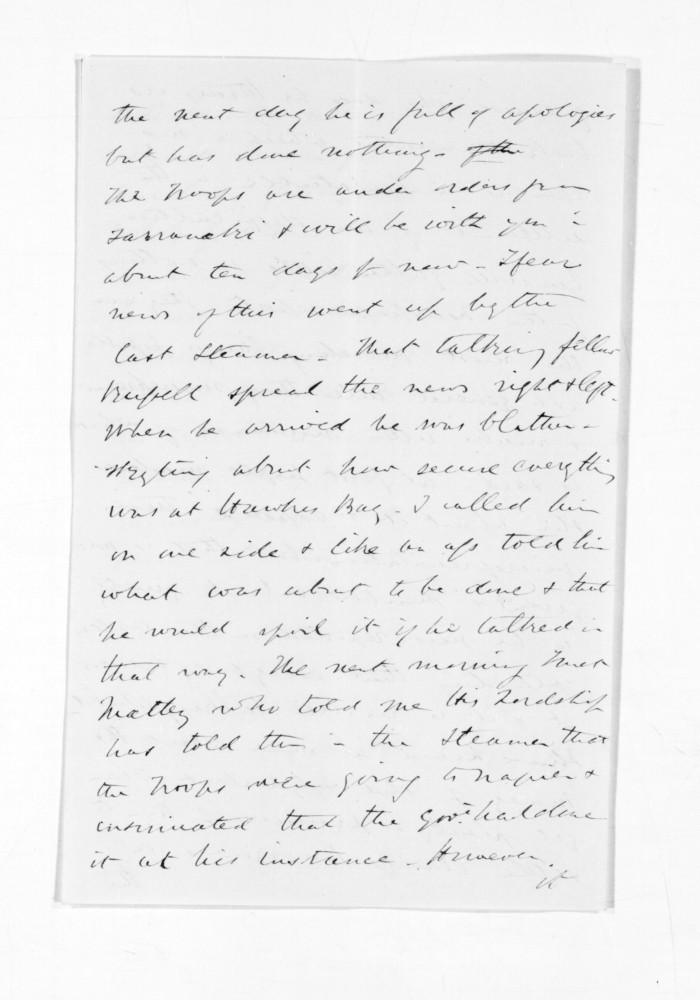 the next day he is full of apologies
but has done nothing - of the
The Troops are under orders from
Tarranaki & will be with you in
about ten days from now - I fear
news of this went up by the
last Steamer - That talking fellow
Russell spread the news right & left.
When he arrived he was blather-
about how secure everything
was at Hawkes Bay - I called him
on one side & like an ass told him
what was about to be done & that
he would spoil it if he talked in
that way. The next morning I met
who told me His Lordship
has told them in the Steamer that
the Troops were going to Napier &
insinuated that the Govr. had done
it at his instance - However
it